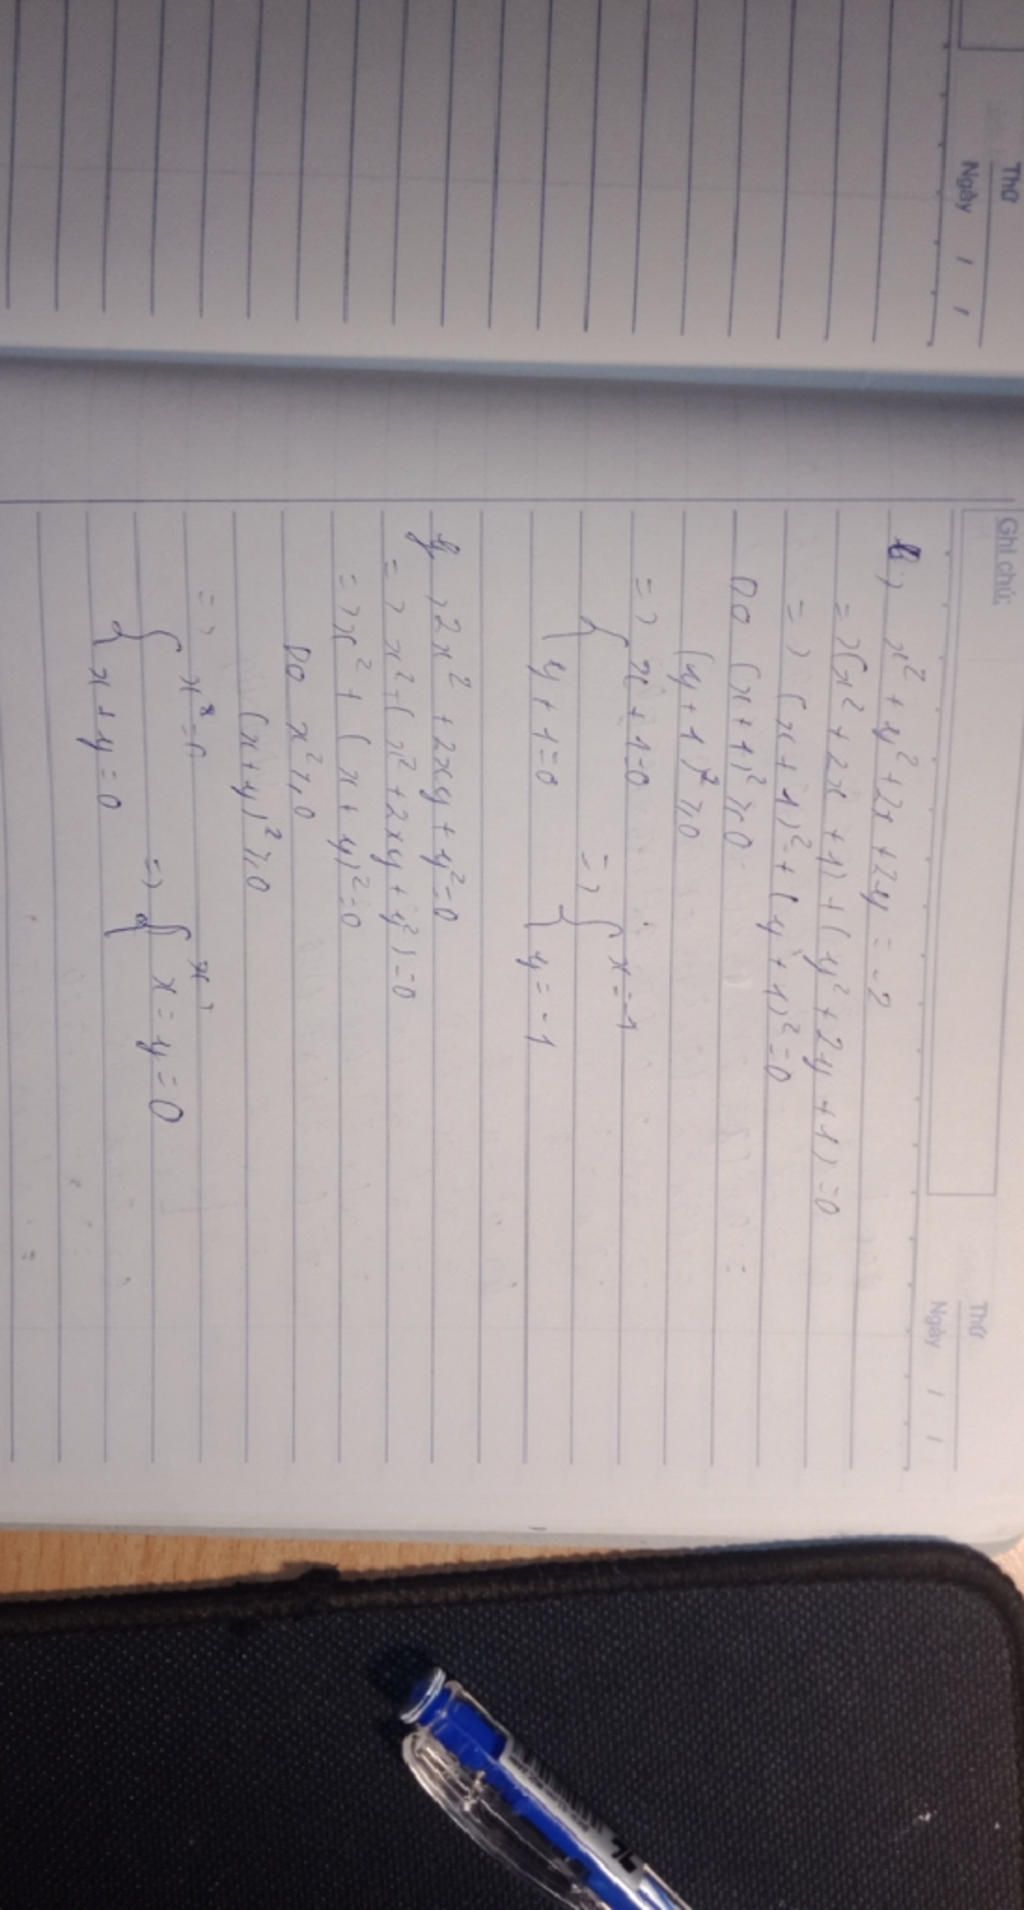 Thứ
Ngày / /
Ghi chú:
Thứ
Ngày / /
b) x² + y² + 2x + 2y = -2
=> (x² + 2x + 1) + (y² + 2y + 1) = 0
=> (x + 1)² + (y + 1)² = 0
Do (x + 1)² ≥ 0
(y + 1)² ≥ 0
=> { x + 1 = 0 => { x = -1
{ y + 1 = 0 { y = -1
) 2x² + 2xy + y² = 0
=> x² + (x² + 2xy + y²) = 0
=> x² + (x + y)² = 0
Do x² ≥ 0
(x + y)² ≥ 0
=> { x² = 0
{ x + y = 0 => { x = y = 0